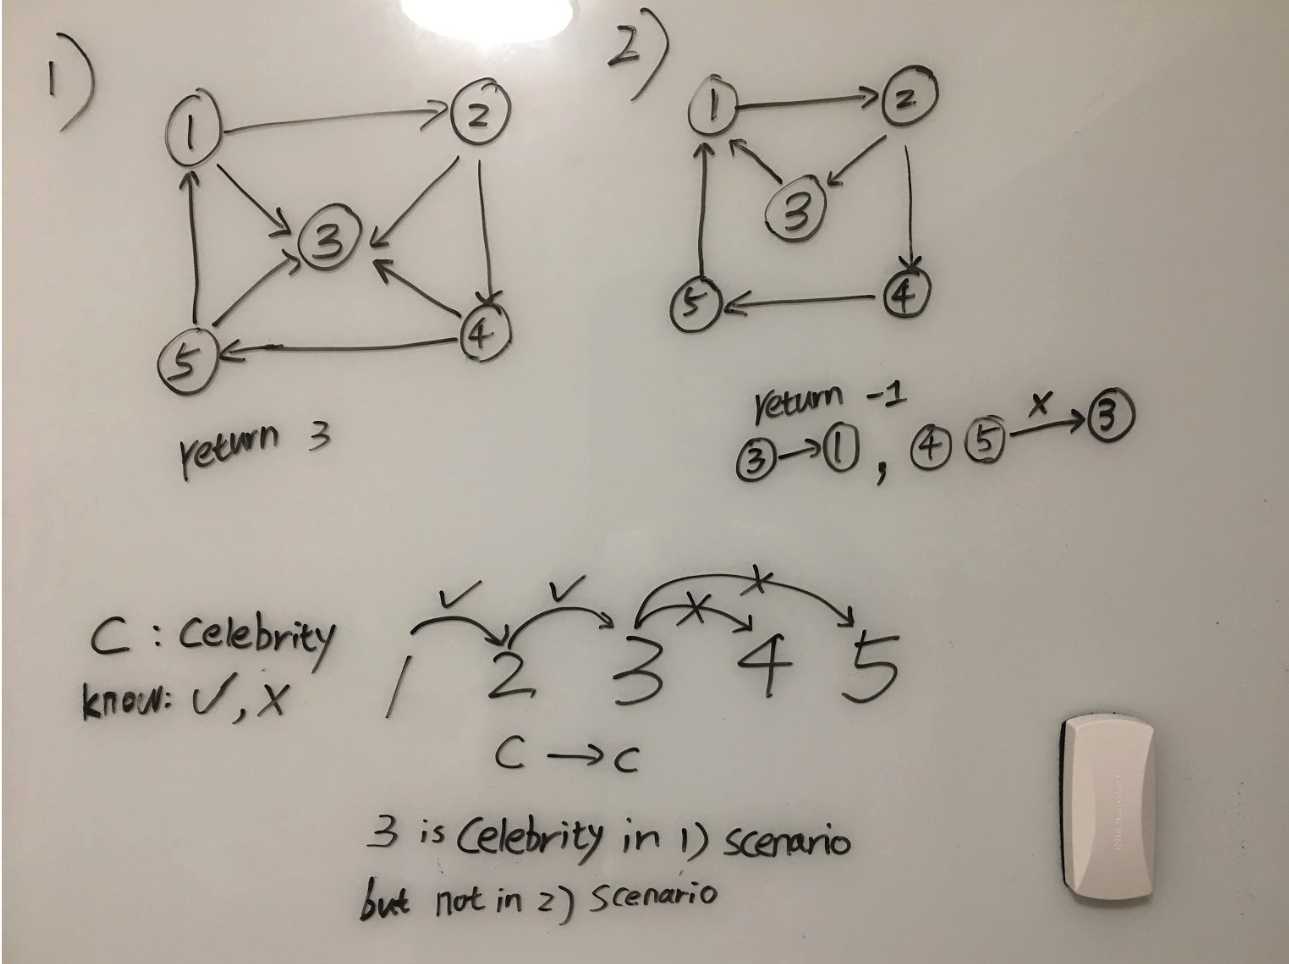 1)
1 2
3
5 4
return 3
2)
1 2
3
5 4
return -1
3 → 1 , 4 5 → 3
x
C : Celebrity
know: ✓, x
✓ ✓ x x
1 2 3 4 5
C → C
3 is Celebrity in 1) scenario
but not in 2) scenario